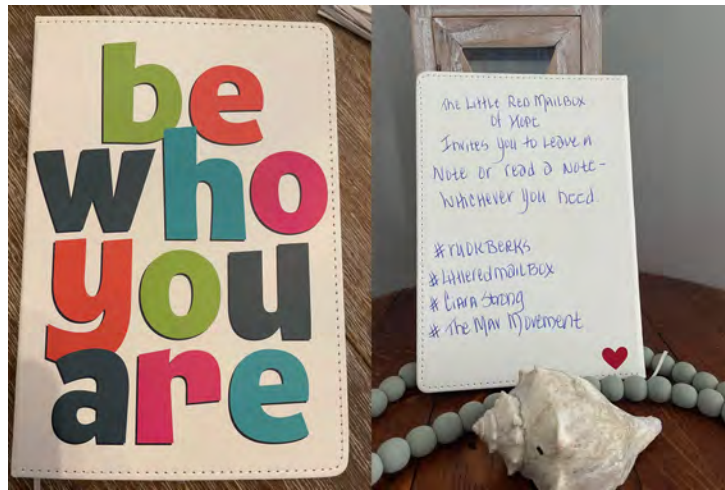 be
who
you
are
The Little Red MailBox
of Hope
Invites you to Leave a
Note or read a Note-
whichever you need.
#rUOKBERKS
#LittleredmailBox
#Ciara Strong
#The Mav Movement